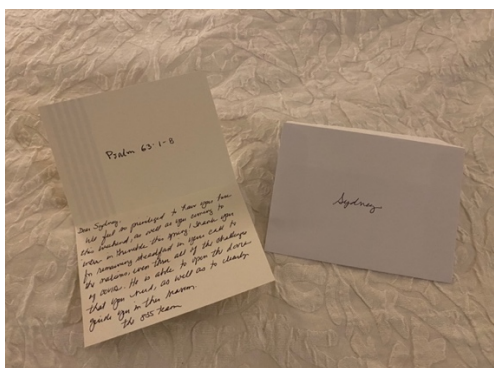 Psalm 63:1-8
Dear Sydney,
We feel so privileged to have you here
this weekend, as well as you coming to
serve in the spring! Thank you
for remaining steadfast in your call to
the nations, even thru all of the challenges
of COVID. He is able to open the doors
that you need, as well as to clearly
guide you in this season.
The team
Sydney